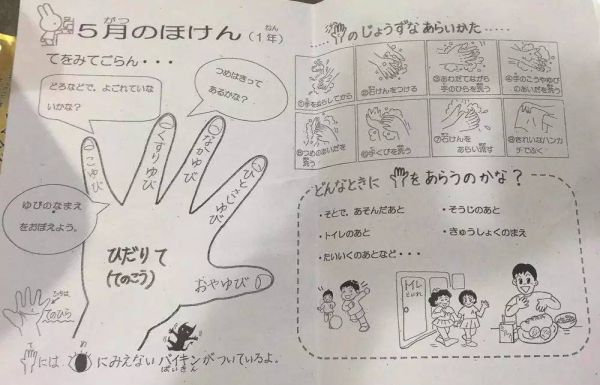 がつ
5月のほけん(1年)
ねん
てをみてごらん・・・
どろなどで、よごれていないかな?
つめはきってあるかな?
こゆび
くすりゆび
なかゆび
ひとさしゆび
おやゆび
ゆびのなまえをおぼえよう。
ひだりて
(てのこう)
てのひら
にはにみえないバイキンがついているよ。
ばいきん
のじょうずなあらいかた
①手をぬらしてから
②石けんをつける
③あわだてながら手のひらを洗う
④手のこうやゆびのあいだを洗う
⑤つめのあいだを洗う
⑥手くびを洗う
⑦石けんをあらい流す
⑧きれいなハンカチでふく
どんなときにをあらうのかな?
・そとで、あそんだあと
・そうじのあと
・トイレのあと
・きゅうしょくのまえ
・たいいくのあとなど・・・
トイレ
といれ